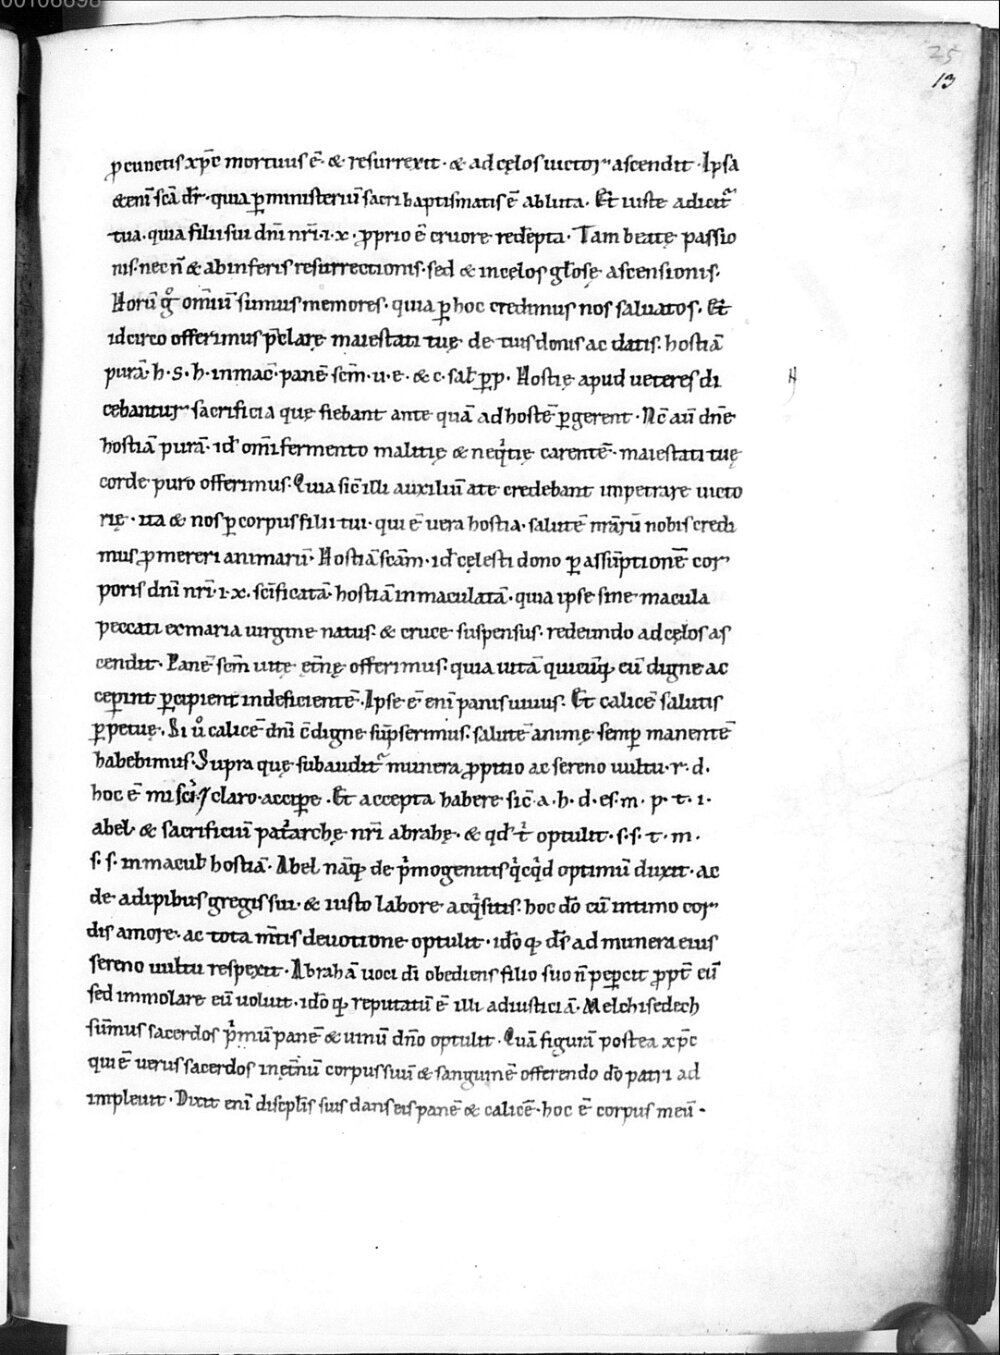 00106898
25
13
ꝓ cunctis xp̄c mortuus ē· & resurrexit· & ad cęlos uictor ascendit· Ipsa
&eni᷎ sc̄a dr̄· quia ꝑ ministeriū sacri baptismatis ē abluta. Et iuste adicit᷑
tua. quia filii sui dn̄i nr̄i. i. x. ꝓprio ē cruore redēpta. Tam beatę passio
nis. nec n̄ & ab inferis resurrectionis. sed & in cęlos gl̄osę ascensionis.
Horū gͦ om̄iū sumus memores. quia ꝑ hoc credimus nos saluatos. Et
idcirco offerimus p̄clarę maiestati tuę de tuis donis ac datis. hostiā
purā. h. s. h. inmac̄. panē sc̄m. u. e. & c. sal̄. ꝑp. Hostię apud ueteres di
cebantur sacrificia quę fiebant ante quā ad hostē ꝑgerent. Nc̄ au᷎ dn̄e
hostiā purā. id᷎ om̄i fermento malitię & neqͥtię carentē. maiestati tuę
corde puro offerimus. Quia sic᷎ illi auxiliū a te credebant impetrare uicto
rię. ita & nos ꝑ corpus filii tui. qui ē uera hostia. salutē nr̄arū nobis credi
mus ꝓmereri animarū. Hostiā sc̄am. id᷎ cęlesti dono ꝑ assūptionē cor
poris dn̄i nr̄i. i. x. sc̄ificatā. hostiā inmaculatā. quia ipse sine macula
peccati ex maria uirgine natus. & cruce suspensus. redeundo ad cęlos as
cendit. Panē sc̄m uitę et̄nę offerimus. quia uitā quicūq; cū digne ac
ceꝑint ꝑcipient indeficientē. Ipse ē eni᷎ panis uiuus. Et calicē salutis
ꝑpetuę. Si uͦ calicē dn̄i c̄digne sūpserimus. salutē animę semꝑ manentē
habebimus. Supra quę subaudit᷑ munera ꝓpitio ac sereno uultu. r. d.
hoc ē misc̄i ⁊ claro. acciꝑe. Et accepta habere sic᷎. a. h. d. es. m. p. t. i.
abel & sacrificiū patͥarchę nr̄i abrahę. & qd᷎ tͥ optulit. s. s. t. m.
s. s. inmacul̄ hostiā. Abel nāq; de pͥmogenitis qͥcqͥd optimū duxit. ac
de adipibus gregis sui. & iusto labore acqͥsitis. hoc do᷎ cū intimo cor
dis amore. ac tota m̄tis deuotione optulit. ido᷎ q; ds̄ ad munera eius
sereno uultu respexit. Abrahā uoci di᷎ obediens filio suo n̄ peꝑcit ꝓpt̄ eū
sed immolare eū uoluit. ido᷎ q; reputatū ē illi ad iusticiā. Melchisedech
sūmus sacerdos pͥmū panē & uinū dn̄o optulit. Quā figurā postea xp̄c
qui ē uerus sacerdos in et̄nū corpus suū & sanguinē offerendo do᷎ patri ad
impleuit. Dixit eni᷎ discipl̄is suis dans eis panē & calicē. hoc ē corpus meū.